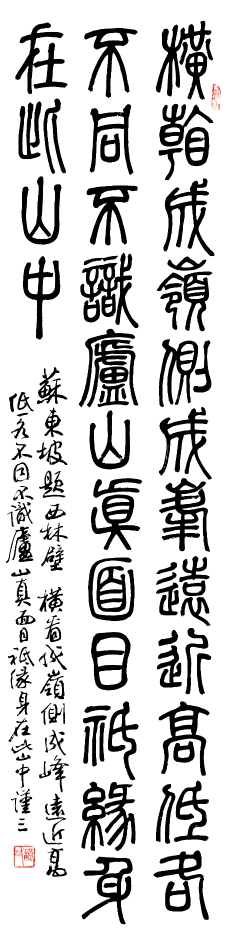 橫看成嶺側成峯遠近高低各
不同不識廬山眞面目祇緣身
在此山中
蘇東坡題西林壁 橫看成嶺側成峰遠近高
低各不同不識廬山真面目祇緣身在此山中謹三